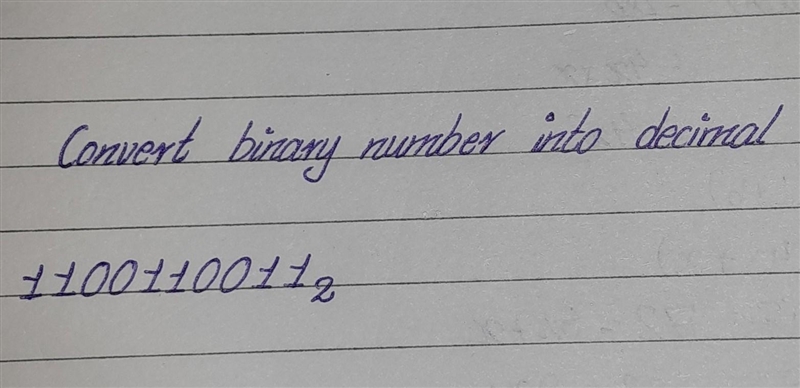 Convert binary number into decimal
1100110011₂